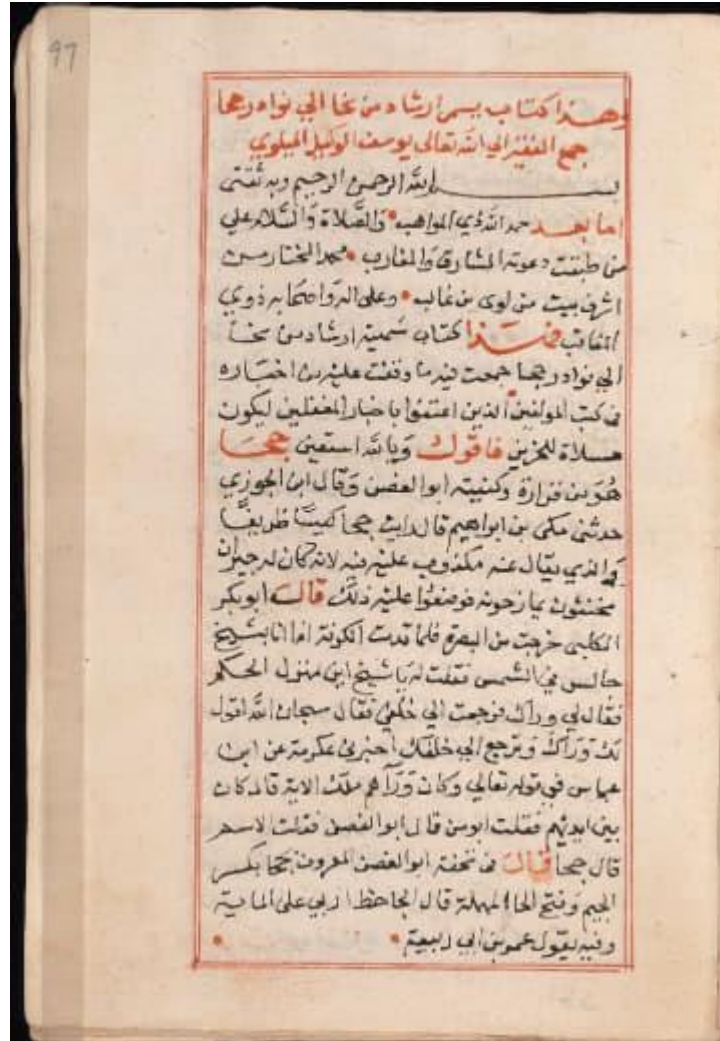 97
وهذا كتاب يسمى ارشاد من نحا الي نوادر جحا
جمع الفقير الي الله تعالى يوسف الوكيل الميلوي
بسم الله الرحمن الرحيم وبه ثقتي
اما بعد حمد الله ذي المواهب والصلاة والسلام علي
من طبقت دعوته المشارق والمغارب محمد المختار من
اشرف بيت من لوى بن غالب وعلى اله واصحابه ذوي
المناقب فهذا كتاب سميته ارشاد من نحا
الي نوادر جحا جمعت فيه ما وقفت عليه من اخباره
في كتب المولفين الذين اعتنوا باخبار المغفلين ليكون
مسلاة للحزين فاقول وبالله استعين جحا
هو بن فزارة وكنيته ابو الغصن وقال ابن الجوزي
حدثني مكي بن ابراهيم قال رايت جحا كيسا ظريفا
والذي يقال عنه مكذوب عليه فيه لانه كان له جيران
مخنثون يمازحونه فوضعوا عليه ذلك قال ابو بكر
الكلبي خرجت من البصرة فلما قدمت الكوفة اذا انا بشيخ
جالس في الشمس فقلت له يا شيخ اين منزل الحكم
فقال لي وراك فرجعت الي خلفي فقال سبحان الله اقول
لك وراك وترجع الي خلفك اخبرني عكرمة عن ابن
عباس في قوله تعالي وكان وراهم ملك الاية قال كان
بين ايديهم فقلت ابو من قال ابو الغصن فقلت الاسم
قال جحا قال في تحفته ابو الغصن المعروف جحا بكسر
الجيم وفتح الحا المهملة قال الجاحظ اربي على الماية
وفيه يقول عمر بن ابي ربيعة